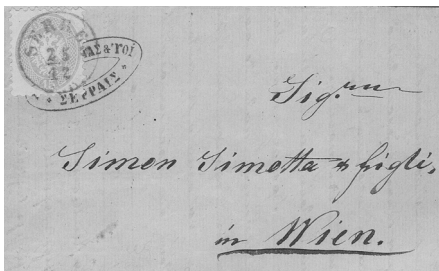 SERRES
25
12
ΣΕΡΡΑΙΣ
Sig.rm
Simon Simotta & figli,
in Wien.